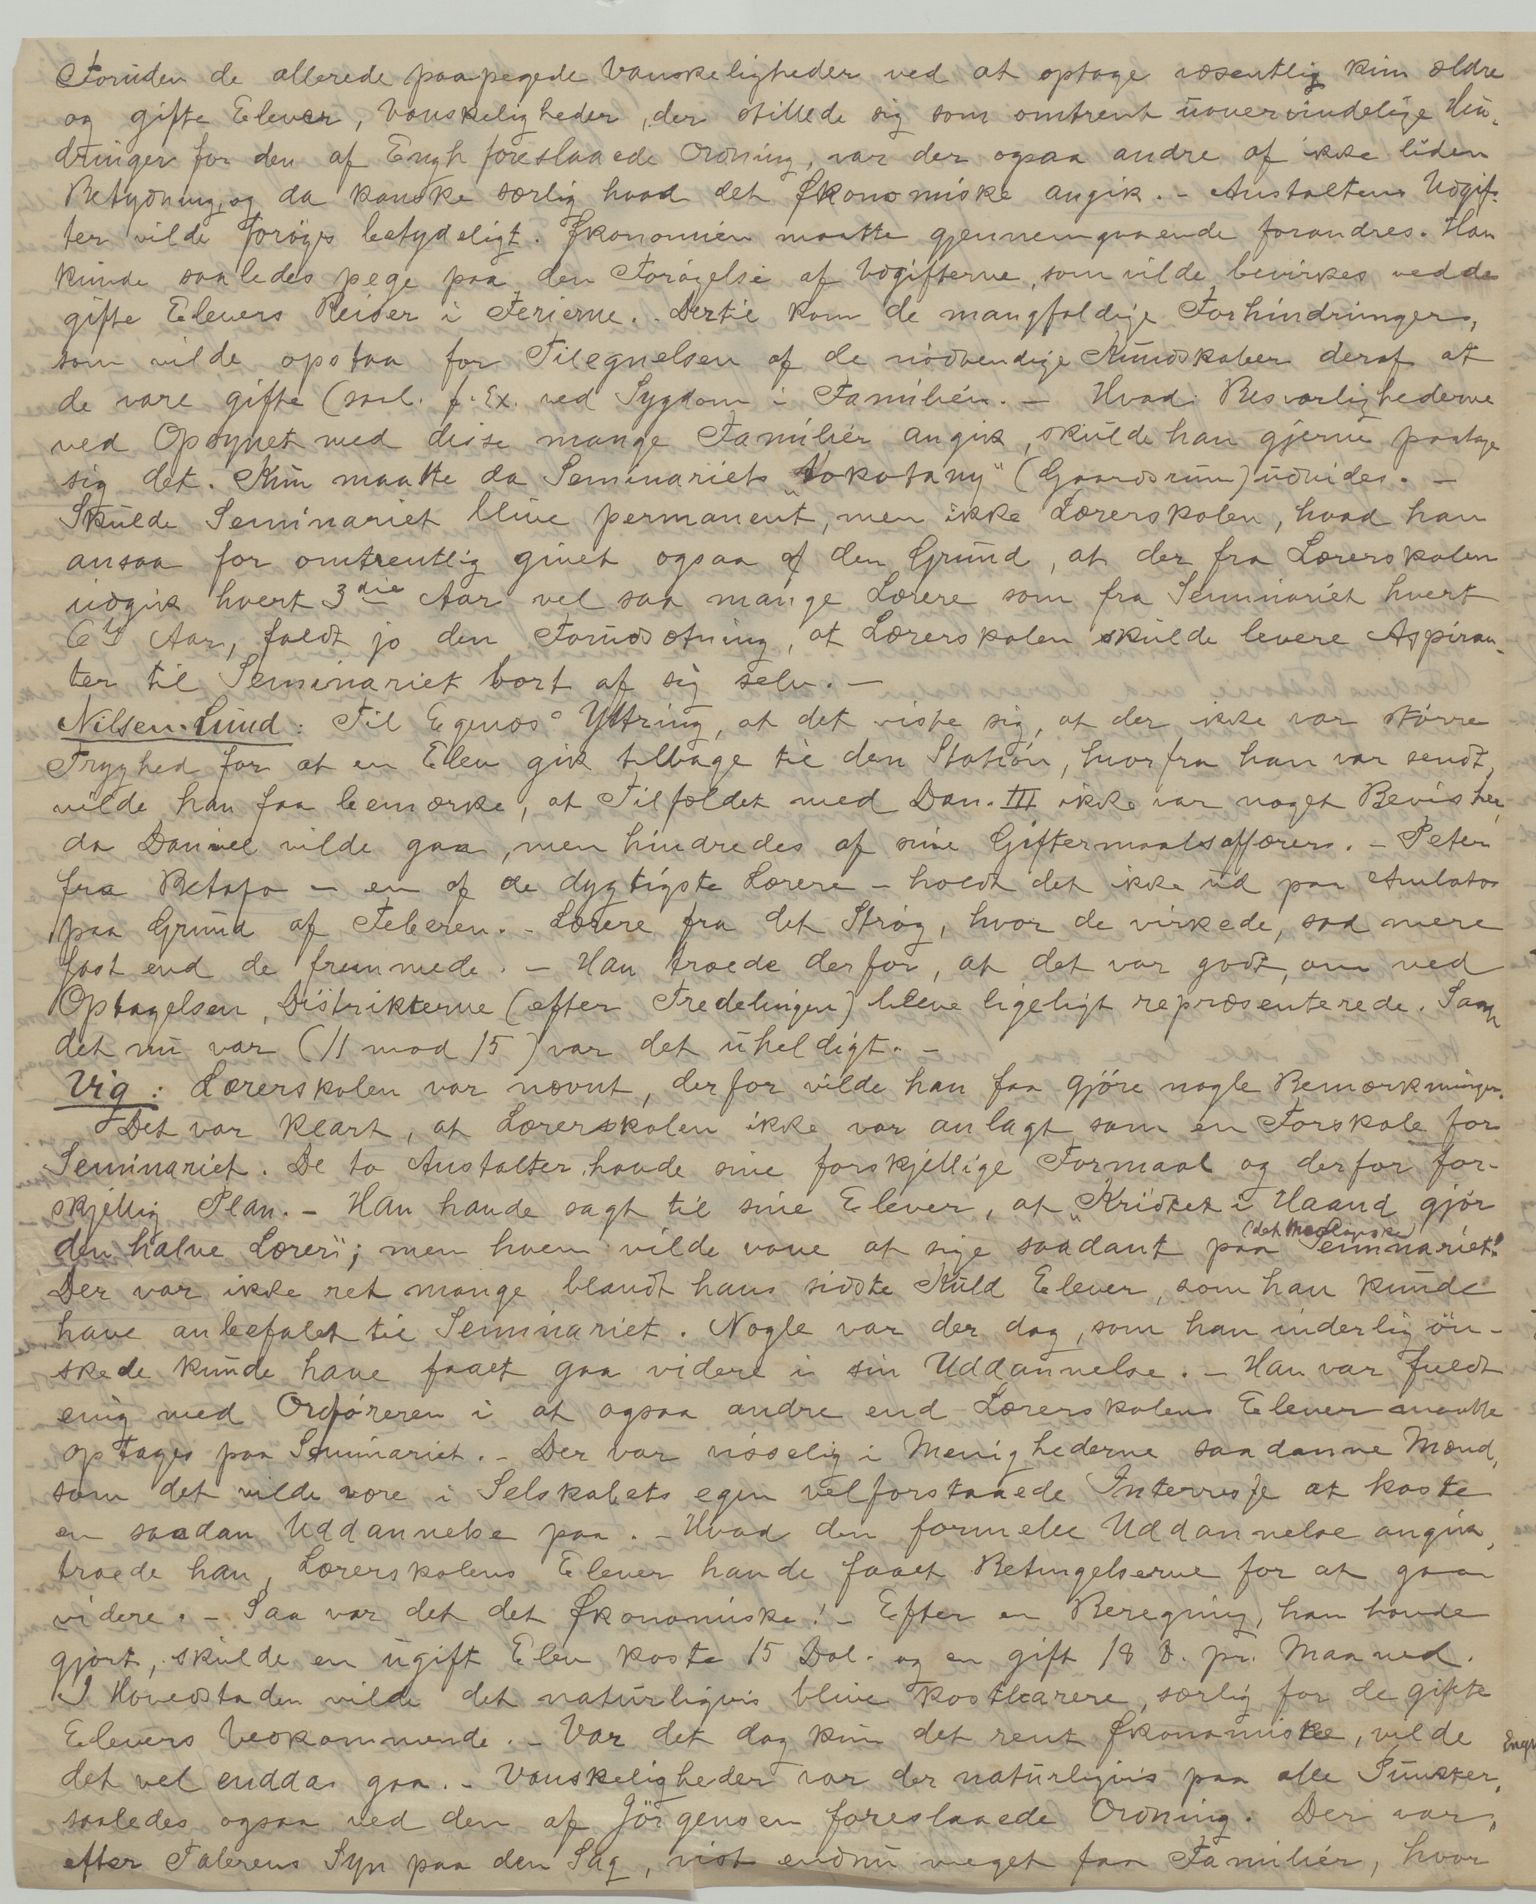 Foruden de allerede paapegede Vanskeligheder ved at optage væsentlig kun ældre
og gifte Elever, Vanskeligheder, der stillede sig som omtrent uovervindelige Hin-
dringer for den af Engh foreslaaede Ordning, var der ogsaa andre af ikke liden
Betydning, og da kanske særlig hvad det Økonomiske angik. - Anstaltens Udgif-
ter vilde forøges betydeligt. Økonomien maatte gjennemgaaende forandres. Han
kunde saaledes pege paa den Forøgelse af Udgifterne, som vilde bevirkes ved de
gifte Elevers Reiser i Ferierne. - Dertil kom de mangfoldige Forhindringer,
som vilde opstaa for Tilegnelsen af de nødvendige Kundskaber deraf at
de vare gifte (saal. f. Ex. ved Sygdom i Familien. - Hvad Besværlighederne
ved Opsynet med disse mange Familier angik, skulde han gjerne paatage
sig det. Kun maatte da Seminariets "tokotany" (Gaardsrum) udvides. -
Skulde Seminariet blive permanent, men ikke Lærerskolen, hvad han
ansaa for omtrentlig givet ogsaa af den Grund, at der fra Lærerskolen
udgik hvert 3die Aar vel saa mange Lærere som fra Seminariet hvert
6te Aar, faldt jo den Forudsætning, at Lærerskolen skulde levere Aspiran-
ter til Seminariet bort af sig selv. -
Nilsen-Lund: Til Egenæs' Yttring, at det viste sig, at der ikke var større
Tryghed for at en Elev gik tilbage til den Station, hvorfra han var sendt,
vilde han faa bemærke, at Tilfældet med Dan. III ikke var noget Bevis her,
da Daniel vilde gaa, men hindredes af sine Giftermaalsaffærer. - Peter
fra Betafo - en af de dygtigste Lærere - holdt det ikke ud paa Ambato
paa Grund af Feberen. - Lærere fra det Strøg, hvor de virkede, sad mere
fast end de fremmede. - Han troede derfor, at det var godt, om ved
Optagelsen, Distrikterne (efter Tredelingen) bleve ligeligt repræsenterede. Saan
det nu var (11 mod 15) var det uheldigt. -
Vig: Lærerskolen var nævnt, derfor vilde han faa gjøre nogle Bemærkninger.
Det var klart, at Lærerskolen ikke var anlagt som en Forskole for
Seminariet. De to Anstalter havde sine forskjellige Formaal og derfor for-
skjellig Plan. - Han havde sagt til sine Elever, at "Kridtet i Haand gjør
den halve Lærer"; men hvem vilde vove at sige saadant paa (det theologiske) Seminariet!
Der var ikke ret mange blandt hans sidste Kuld Elever, som han kunde
have anbefalet til Seminariet. Nogle var der dog, som han inderlig øn-
skede kunde have faaet gaa videre i sin Uddannelse. - Han var fuldt
enig med Ordføreren i at ogsaa andre end Lærerskolens Elever maatte
optages paa Seminariet. - Der var visselig i Menighederne saadanne Mænd,
som det vilde være i Selskabets egen velforstaaede Interresse at koste
en saadan Uddannelse paa. - Hvad den formelle Uddannelse angik,
troede han, Lærerskolens Elever havde faaet Betingelserne for at gaa
videre. - Saa var det det Økonomiske! - Efter en Beregning, han havde
gjort, skulde en ugift Elev koste 15 Dol. og en gift 18 D. pr. Maaned.
I Hovedstaden vilde det naturligvis blive kostbarere, særlig for de gifte
Elevers Vedkommende. - Var det dog kun det rent Økonomiske, vilde
det vel endda gaa. - Vanskeligheder var der naturligvis paa alle Punkter,
saaledes ogsaa ved den af Jørgensen foreslaaede Ordning. Der var,
efter Talerens Syn paa den Sag, vist endnu meget faa Familier, hvor